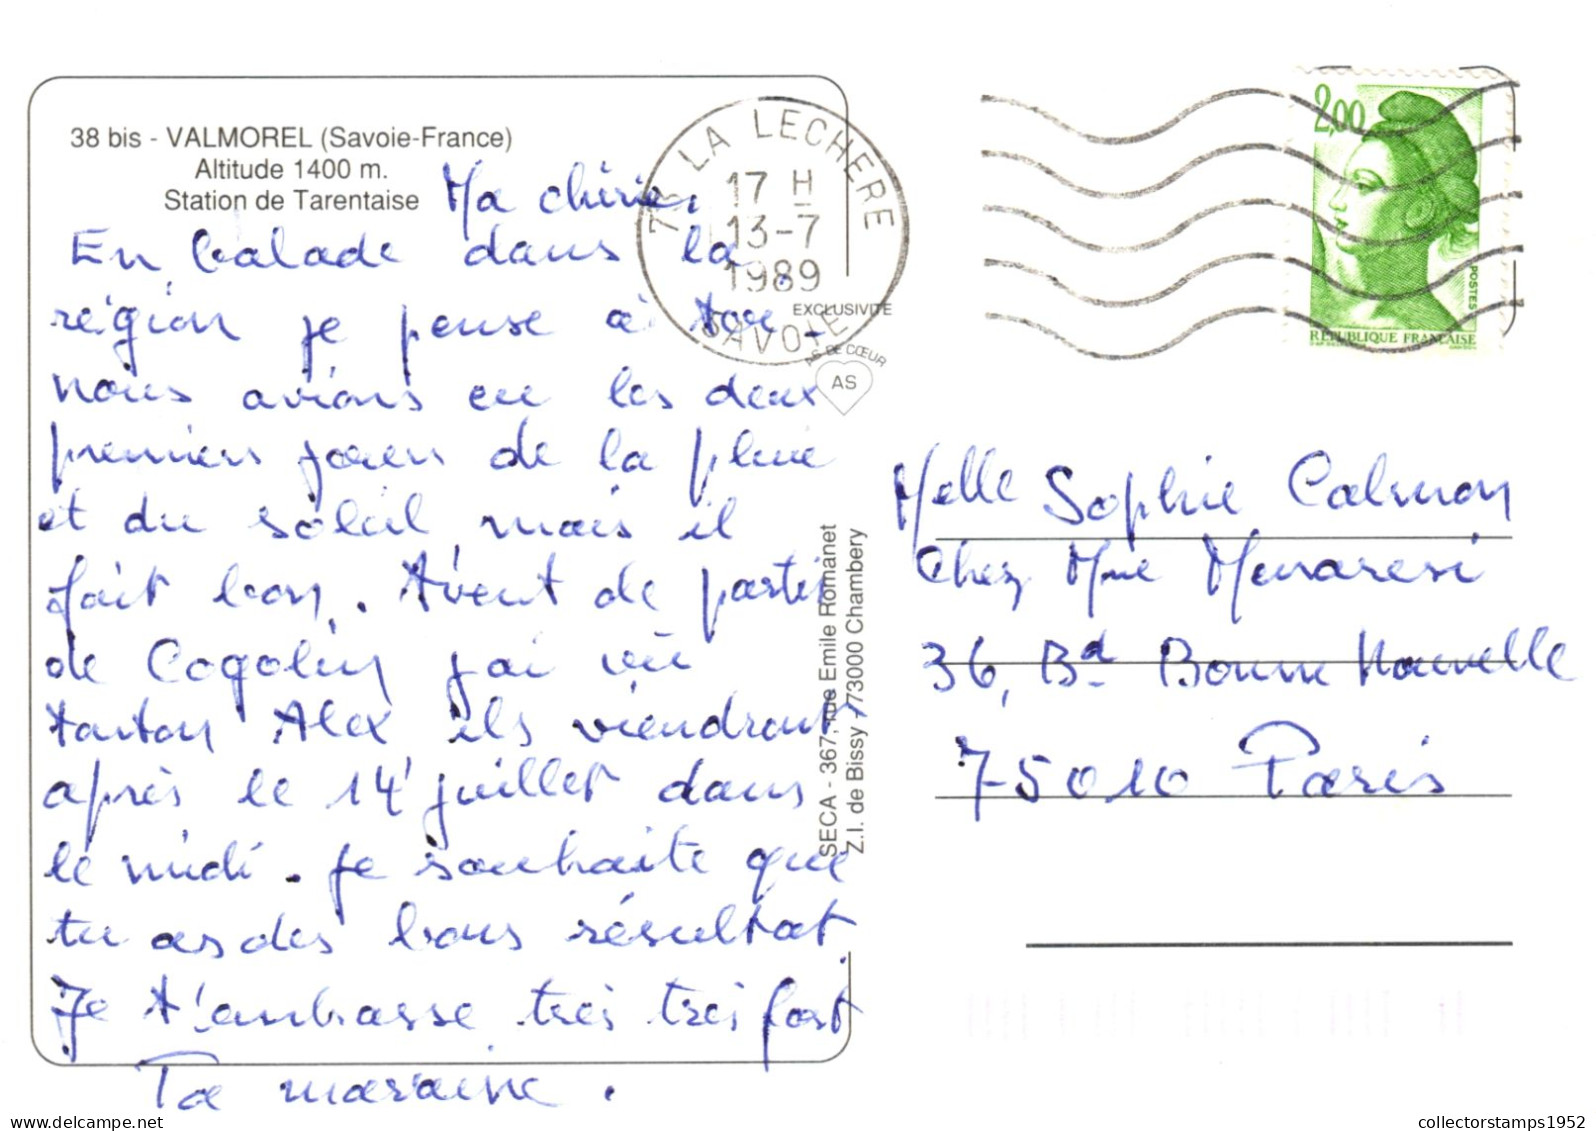 38 bis - VALMOREL (Savoie-France)
Altitude 1400 m.
Station de Tarentaise
Ma chérie,
En balade dans la
région je pense à toi.
nous avions eu les deux
premiers jours de la pluie
et du soleil mais il
fait bon. Avant de partir
de Cogolin j'ai vu
tonton Alex ils viendront
après le 14 juillet dans
le midi. Je souhaite que
tu as des bons résultat
Je t'embrasse très très fort
Ta marraine.
73 LA LECHERE
17 H
13-7
1989
SAVOIE
EXCLUSIVITE
AS DE CŒUR
AS
SECA - 367, rue Emile Romanet
Z.I. de Bissy - 73000 Chambery
2,00
POSTES
REPUBLIQUE FRANÇAISE
Melle Sophie Calmon
Chez Mme
36, Bd Bonne Nouvelle
75010 Paris
collectorstamps1952